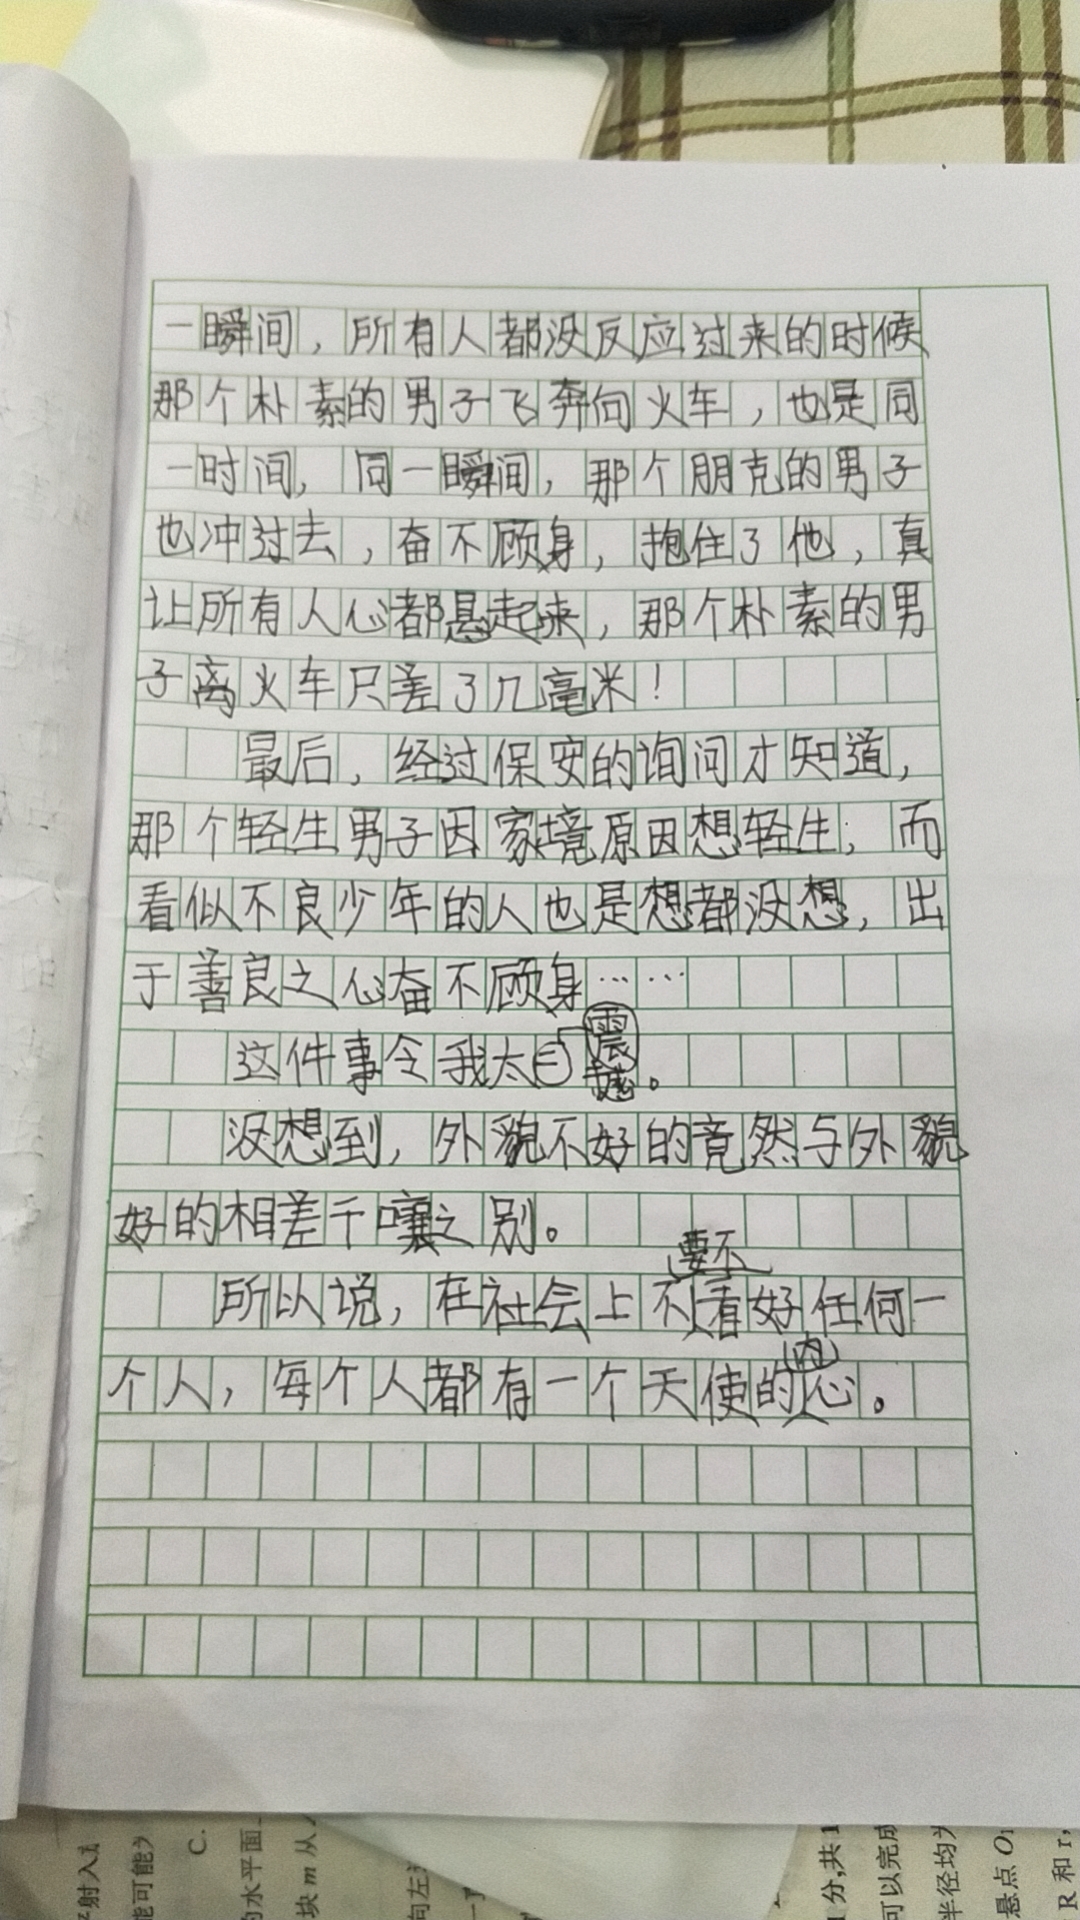 一瞬间，所有人都没反应过来的时候
那个朴素的男子飞奔向火车，也是同
一时间，同一瞬间，那个朋克的男子
也冲过去，奋不顾身，抱住了他，真
让所有人心都悬起来，那个朴素的男
子离火车只差了几毫米！
最后，经过保安的询问才知道，
那个轻生男子因家境原因想轻生；而
看似不良少年的人也是想都没想，出
于善良之心奋不顾身……
这件事令我太震撼。
没想到，外貌不好的竟然与外貌
好的相差千嚷之别。
要不
所以说，在社会上不看好任何一
内
个人，每个人都有一个天使的心。
射入
能可能为
C.
的水平面
块m从
向左
分,共1
可以完成
半径均为
悬点O
R和r,